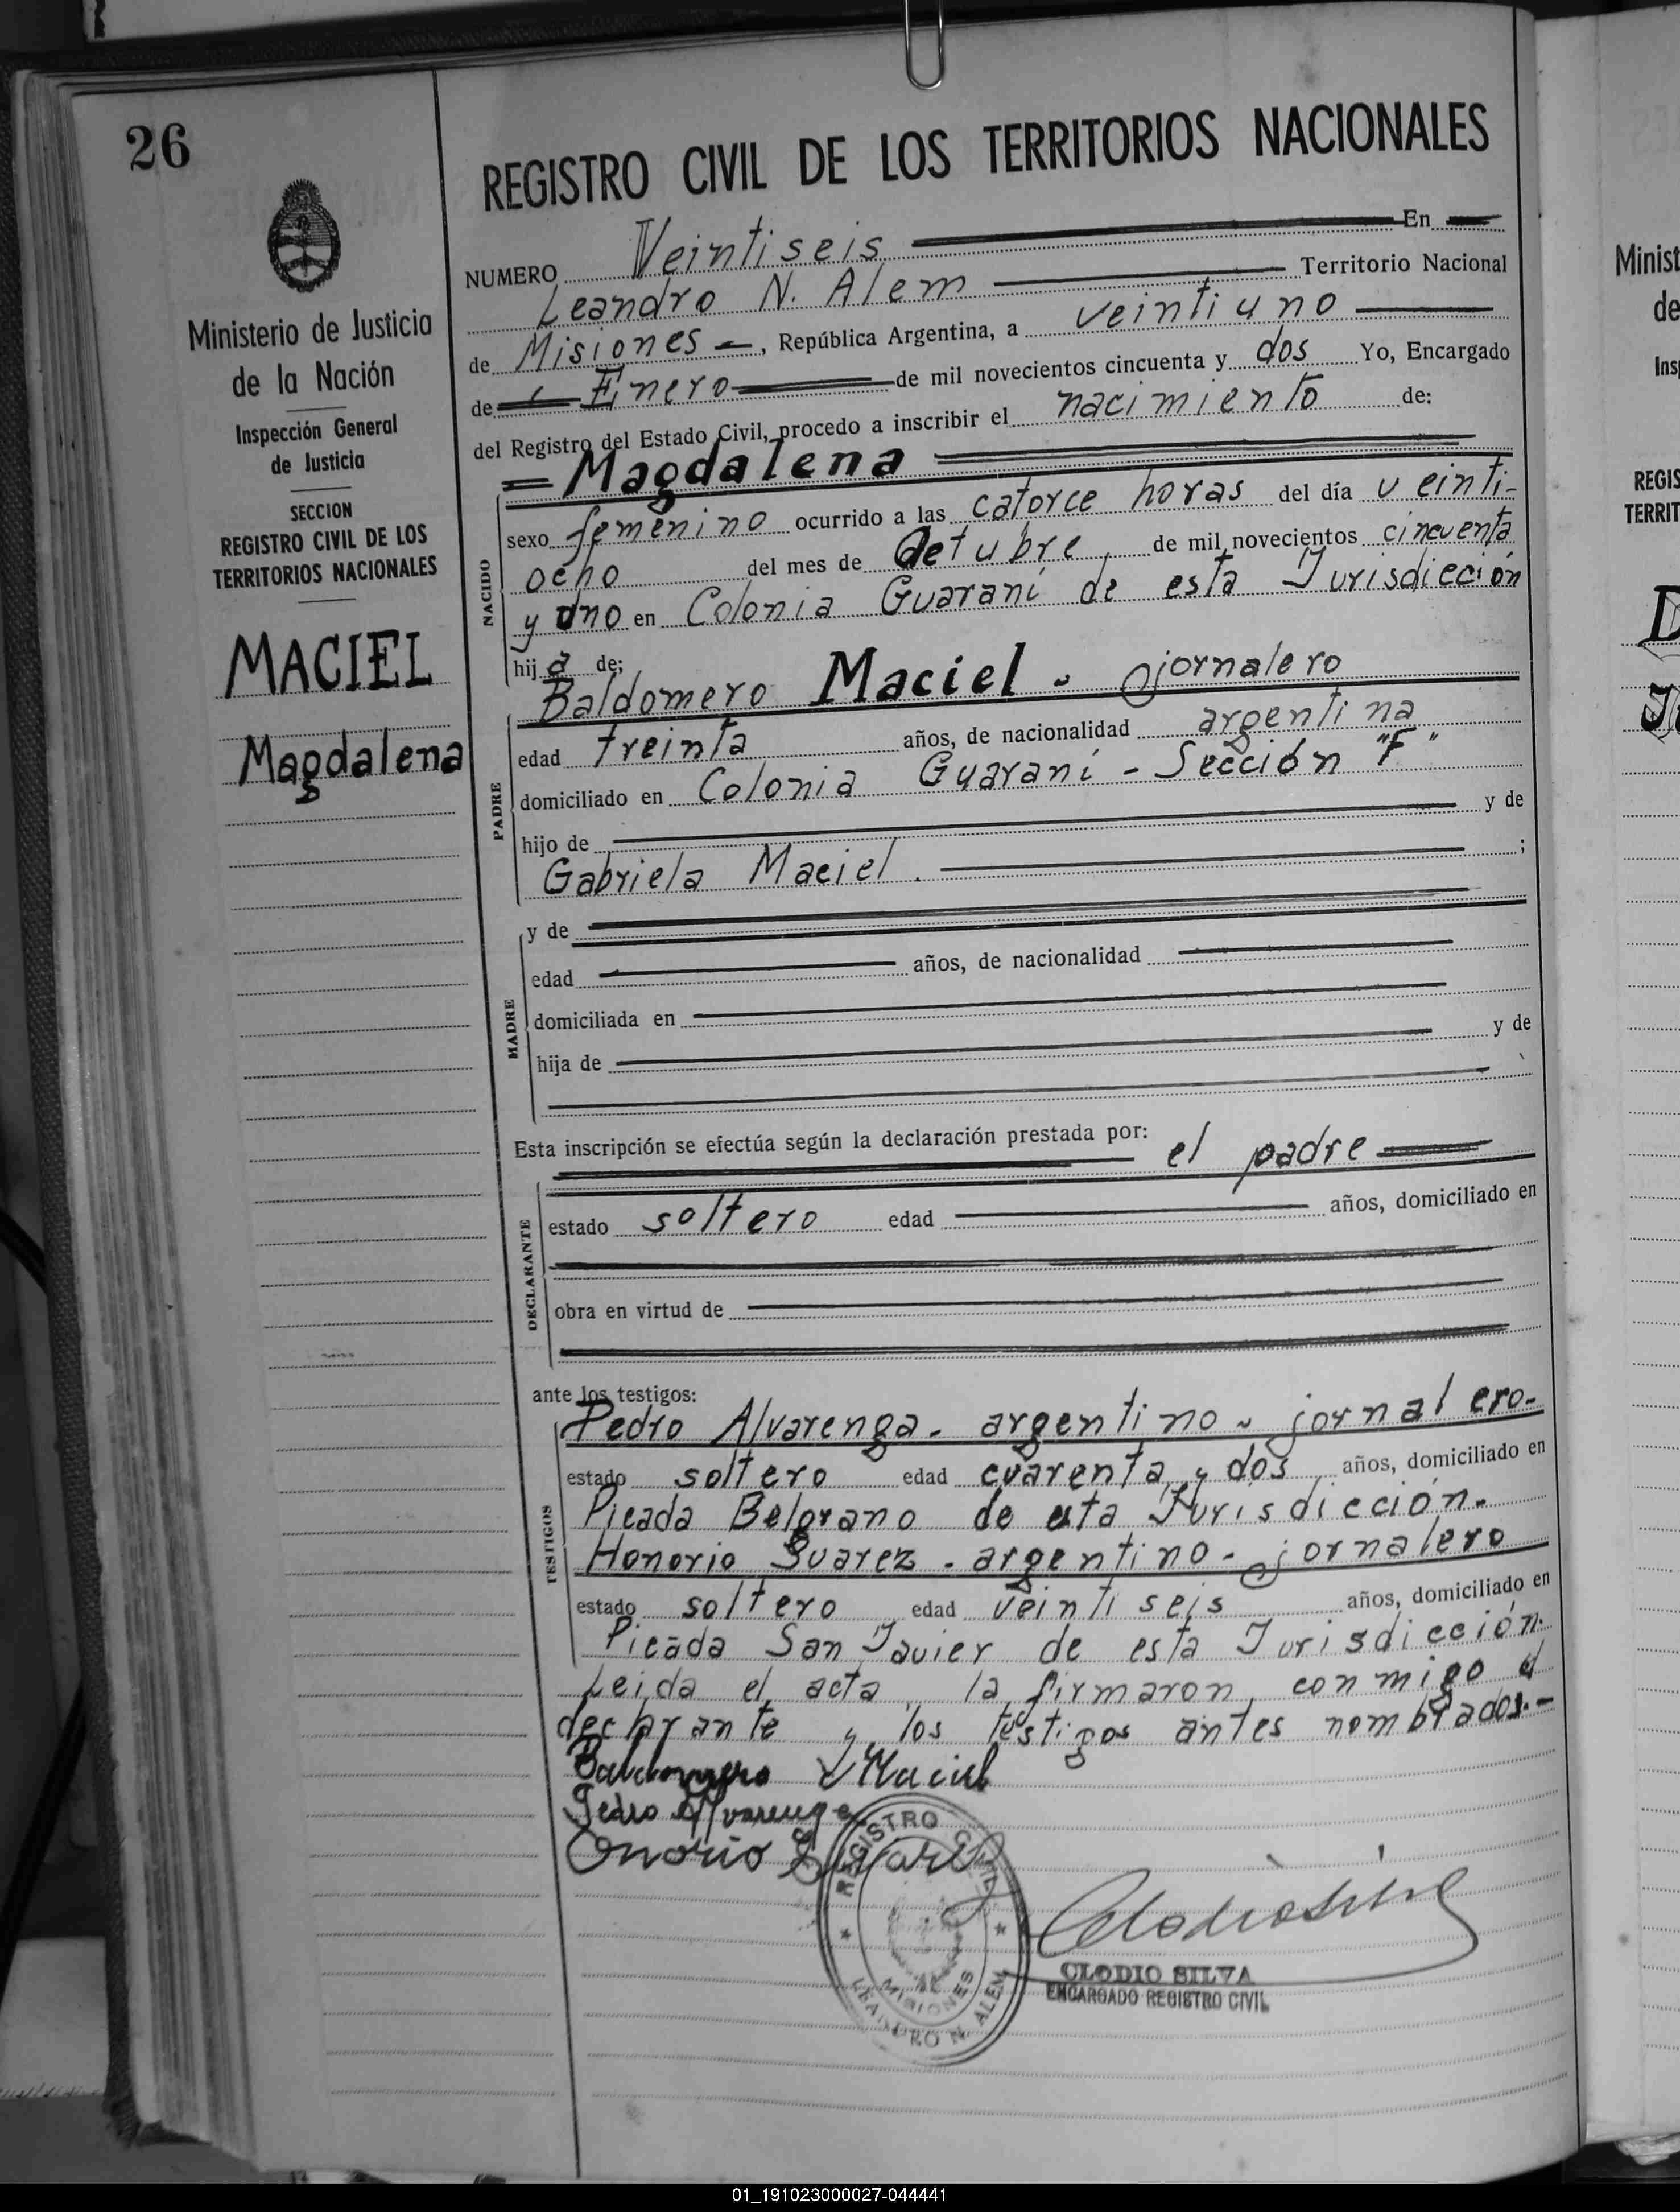 26
Ministerio de Justicia
de la Nación
Inspección General
de Justicia
SECCION
REGISTRO CIVIL DE LOS
TERRITORIOS NACIONALES
MACIEL
Magdalena
REGISTRO CIVIL DE LOS TERRITORIOS NACIONALES
NUMERO Veintiseis En
Leandro N. Alem Territorio Nacional
de Misiones, República Argentina, a veintiuno
de Enero de mil novecientos cincuenta y dos Yo, Encargado
del Registro del Estado Civil, procedo a inscribir el nacimiento de:
Magdalena
NACIDO
sexo femenino ocurrido a las catorce horas del día veinti-
ocho del mes de Octubre, de mil novecientos cincuenta
y uno en Colonia Guaraní de esta Jurisdicción
hija de;
Baldomero Maciel - jornalero
PADRE
edad treinta años, de nacionalidad argentina
domiciliado en Colonia Guaraní - Sección "F"
hijo de y de
Gabriela Maciel. ;
MADRE
y de
edad años, de nacionalidad
domiciliada en
hija de y de
Esta inscripción se efectúa según la declaración prestada por: el padre
DECLARANTE
estado soltero edad años, domiciliado en
obra en virtud de
ante los testigos:
TESTIGOS
Pedro Alvarenga - argentino - jornalero.
estado soltero edad cuarenta y dos años, domiciliado en
Picada Belgrano de esta Jurisdicción.
Honorio Suarez - argentino - jornalero
estado soltero edad veintiseis años, domiciliado en
Picada San Javier de esta Jurisdicción.
Leida el acta, la firmaron conmigo el
declarante y los testigos antes nombrados.-
Baldomero Maciel
Pedro Alvarenga
Onorio Suarez
REGISTRO CIVIL
MISIONES
LEANDRO N. ALEM
Clodio Silva
CLODIO SILVA
ENCARGADO REGISTRO CIVIL
Minist
de
Insp
REGIS
TERRIT
01_191023000027-044441